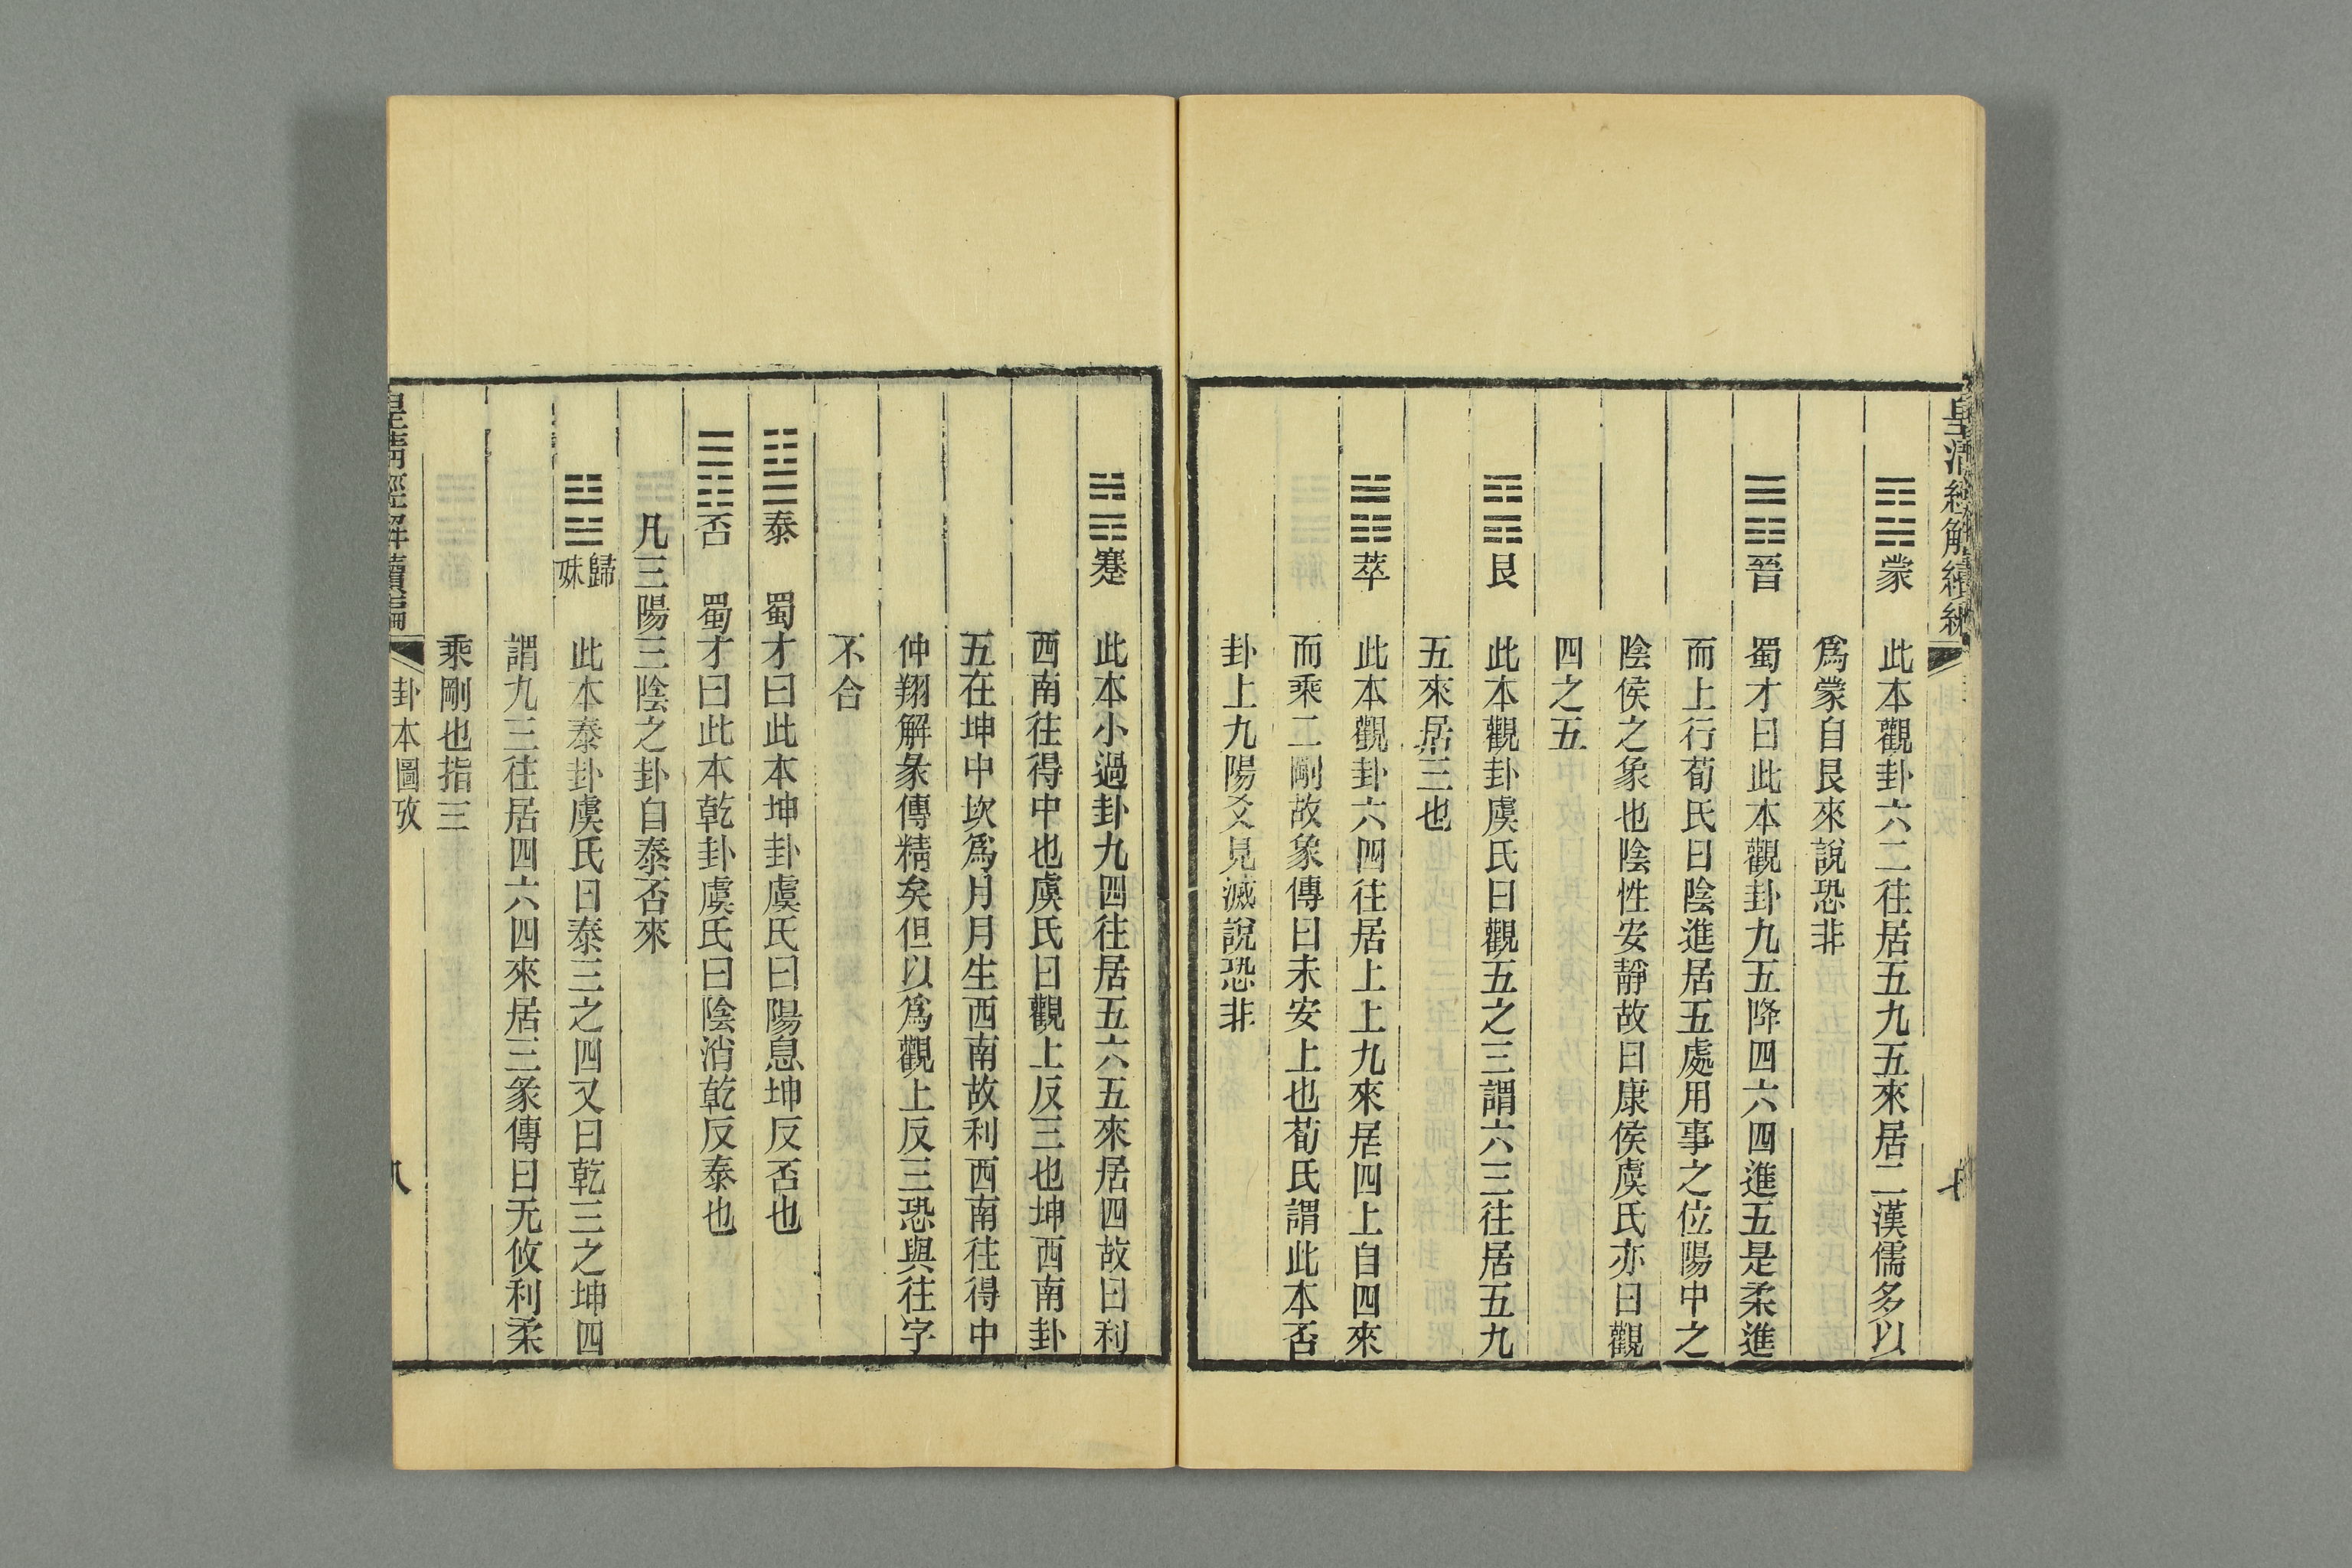 皇清經解續編
䷃蒙 此本觀卦六二往居五九五來居二漢儒多以
爲蒙自艮來說恐非
䷢晉 蜀才曰此本觀卦九五降四六四進五是柔進
而上行荀氏曰陰進居五處用事之位陽中之
陰侯之象也陰性安靜故曰康侯虞氏亦曰觀
四之五
䷳艮 此本觀卦虞氏曰觀五之三謂六三往居五九
五來居三也
䷬萃 此本觀卦六四往居上上九來居四上自四來
而乘二剛故象傳曰未安上也荀氏謂此本否
卦上九陽爻見滅說恐非
䷦蹇 此本小過卦九四往居五六五來居四故曰利
西南往得中也虞氏曰觀上反三也坤西南卦
五在坤中坎爲月月生西南故利西南往得中
仲翔解彖傳精矣但以爲觀上反三恐與往字
不合
䷊泰 蜀才曰此本坤卦虞氏曰陽息坤反否也
䷋否 蜀才曰此本乾卦虞氏曰陰消乾反泰也
凡三陽三陰之卦自泰否來
䷵歸妹 此本泰卦虞氏曰泰三之四又曰乾三之坤四
謂九三往居四六四來居三彖傳曰无攸利柔
乘剛也指三
皇清經解續編 卦本圖攷 八